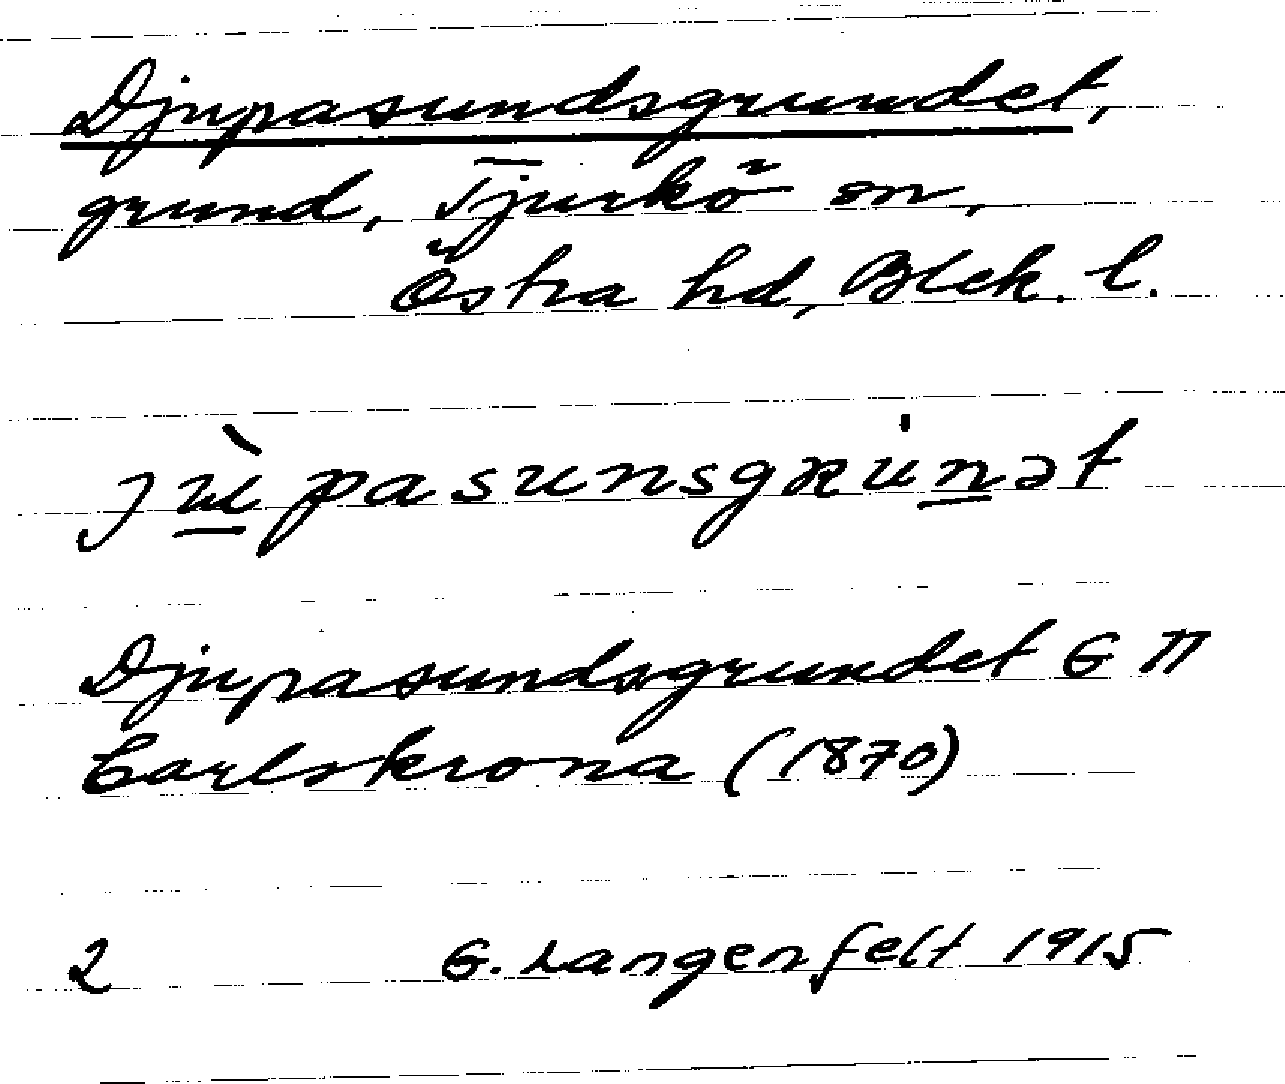 Djupasundsgrundet,
grund, Tjurkö sn,
Östra hd, Blek. l.
jùpasunsgʀu̍nət
Djupasundsgrundet G II
Carlskrona (1870)
2 G. Langenfelt 1915